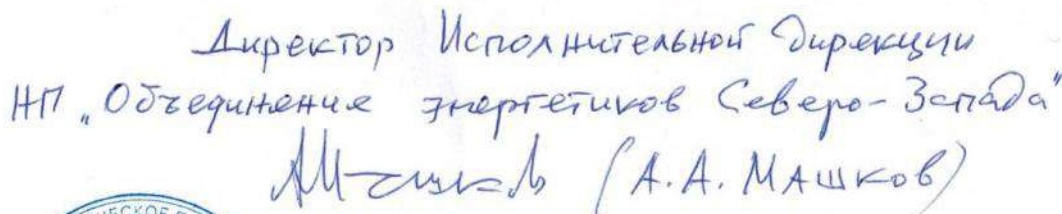 Директор Исполнительной Дирекции
НП „Объединение энергетиков Северо-Запада"
(А.А. Машков)